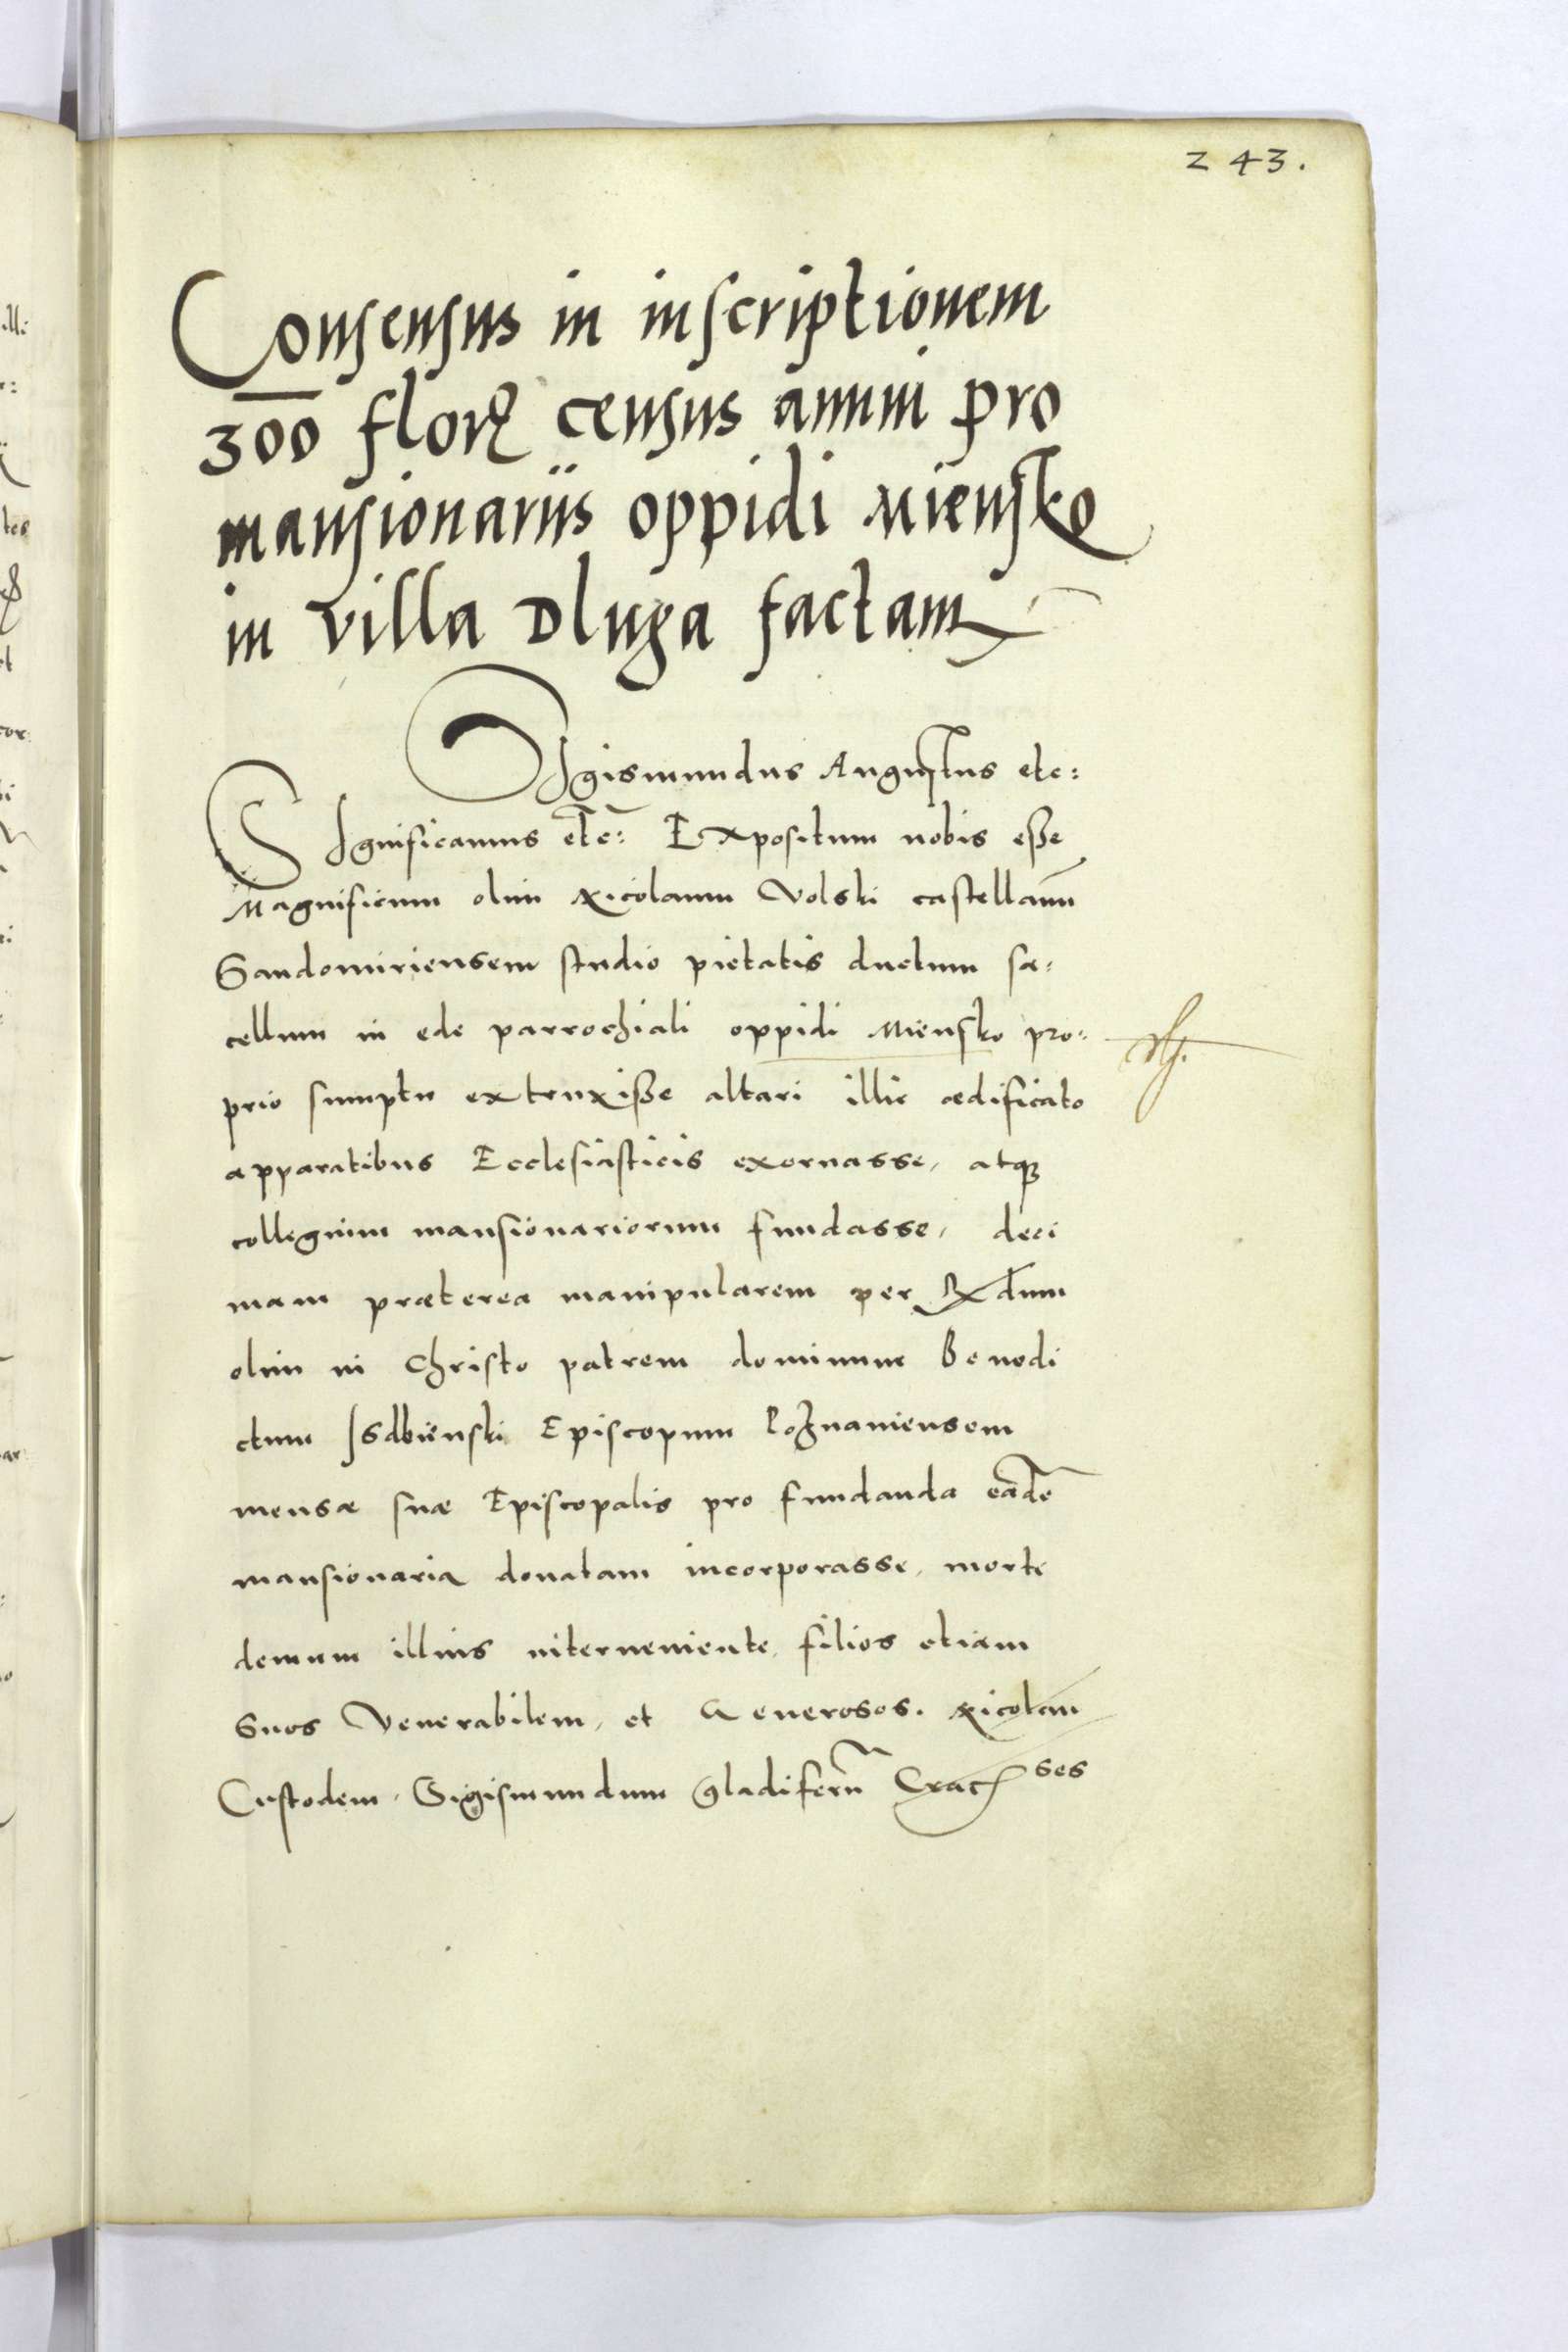 243.
Consensus in inscriptionem
300 florꝝ census annui pro
mansionariis oppidi Miensko
in villa Dluga factam
SIgismundus Augustus etc:
SIgnificamus etc: Expositum nobis esse
Magnificum olim Nicolaum Volski castellanū
Sandomiriensem studio pietatis ductum sa-
cellum in ede parrochiali oppidi Miensko pro-
prio sumptu extruxisse altari illic ædificato
apparatibus Ecclesiasticis exornasse, atqꝫ
collegium mansionariorum fundasse, deci
mam præterea manipularem per Rxdum
olim in Christo patrem dominum Benedi
ctum Isdbienski Episcopum Poznaniensem
mensæ suæ Episcopalis pro fundanda eadē
mansionaria donatam incorporasse, morte
demum illius interveniente, filios etiam
suos Venerabilem, et Generosos. Nicolau
Custodem, Sigismundum gladiferū Cracses